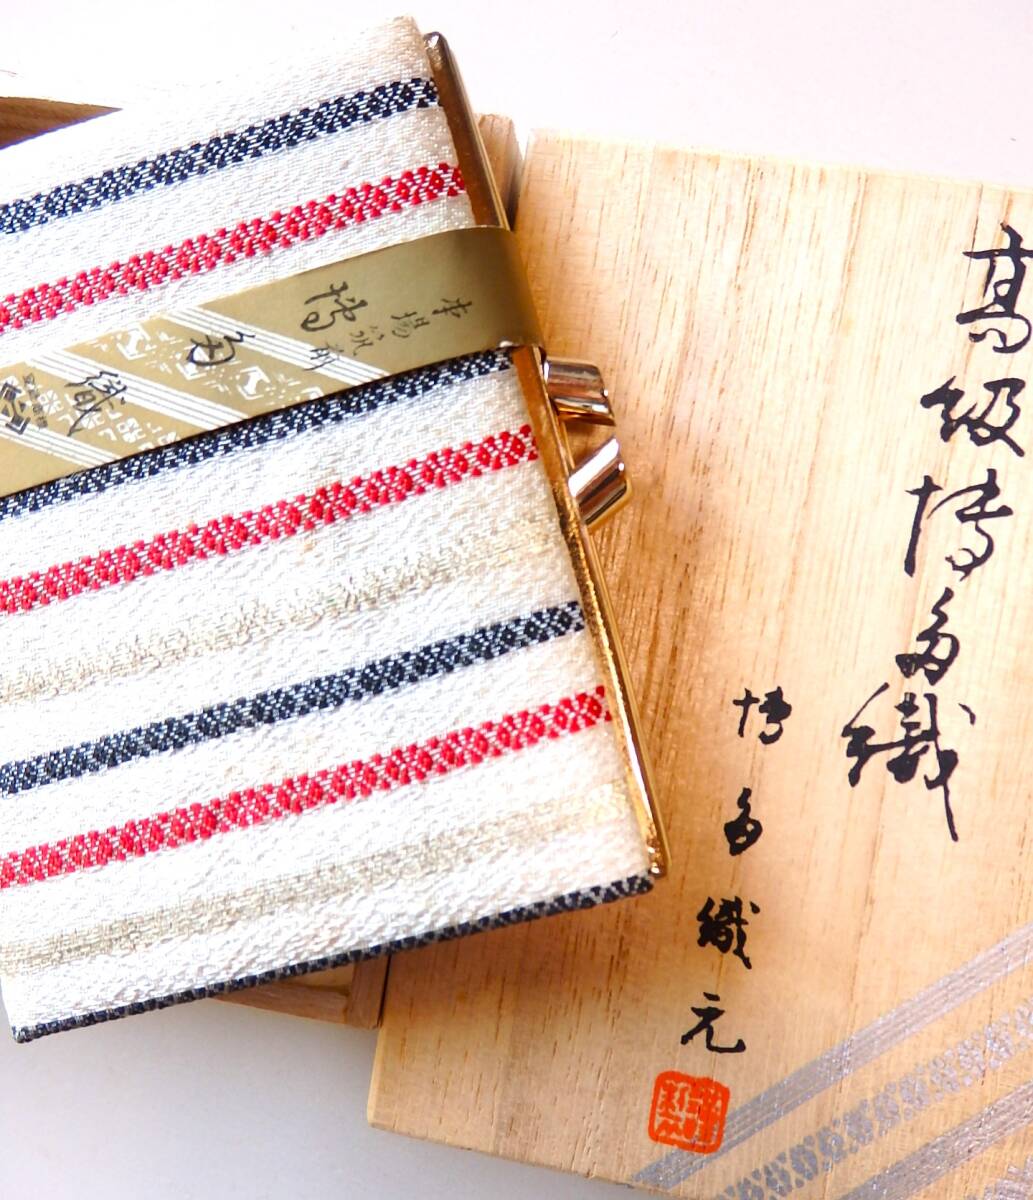 高級博多織
博多織元
本場筑前
博多織